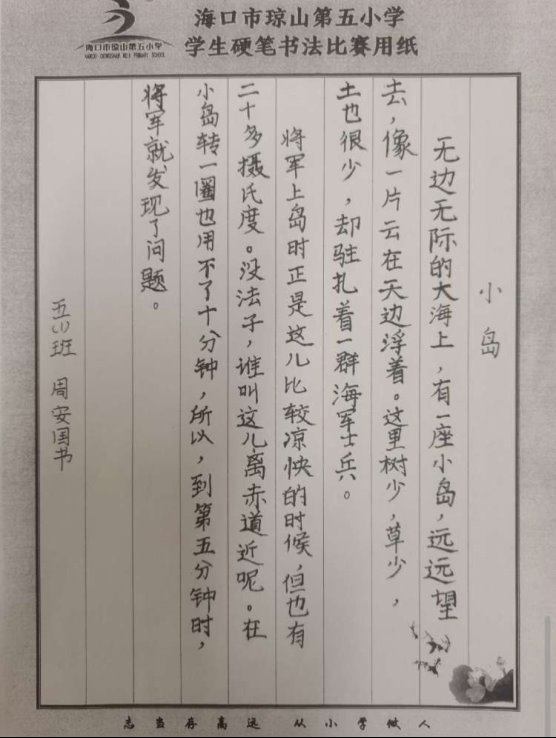 海口市琼山第五小学
学生硬笔书法比赛用纸
海口市琼山第五小学
小岛
无边无际的大海上，有一座小岛，远远望
去，像一片云在天边浮着。这里树少，草少，
土也很少，却驻扎着一群海军士兵。
将军上岛时正是这儿比较凉快的时候，但也有
二十多摄氏度。没法子，谁叫这儿离赤道近呢。在
小岛转一圈也用不了十分钟，所以，到第五分钟时，
将军就发现了问题。
五(1)班 周安国书
志当存高远 从小学做人